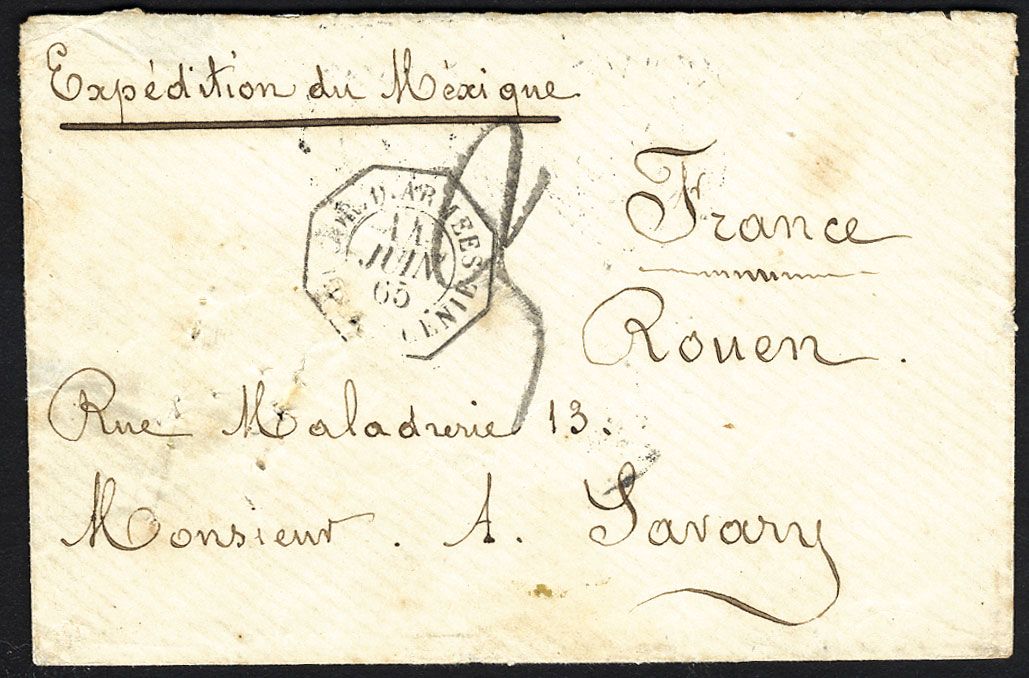 Expédition du Méxique
France
COR. D. ARMEES
11
JUIN
65
Rouen.
Rue Maladrerie 13.
Monsieur. A. Savary